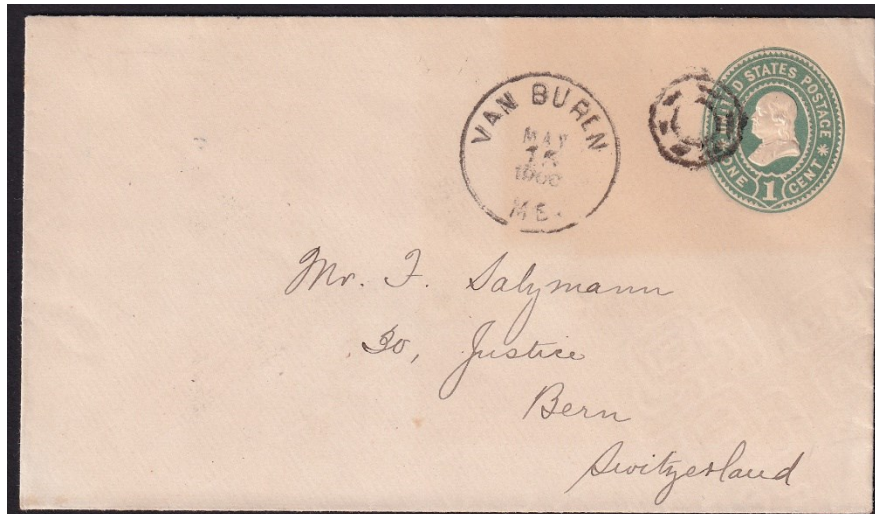 VAN BUREN
MAY
15
ME.
UNITED STATES POSTAGE
ONE 1 CENT
Mr. F. Salzmann
30, Justice
Bern
Switzerland